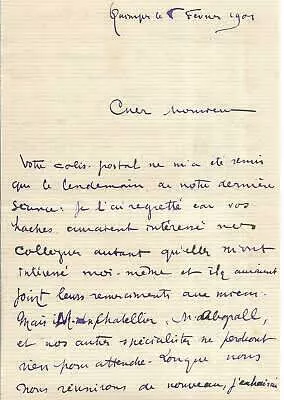 Quimper le 8 Février 1901
Cher Monsieur
Votre colis-postal ne m'a été remis
que le lendemain de notre dernière
séance. Je l'ai regretté car vos
haches auraient intéressé nos
collègues autant qu'elles m'ont
intéressé moi-même et ils auraient
joint leurs remerciements aux miens.
Mais M. du Chatellier, M. Abgrall,
et nos autres spécialistes ne perdront
rien pour attendre. Lorsque nous
nous réunirons de nouveau, j'